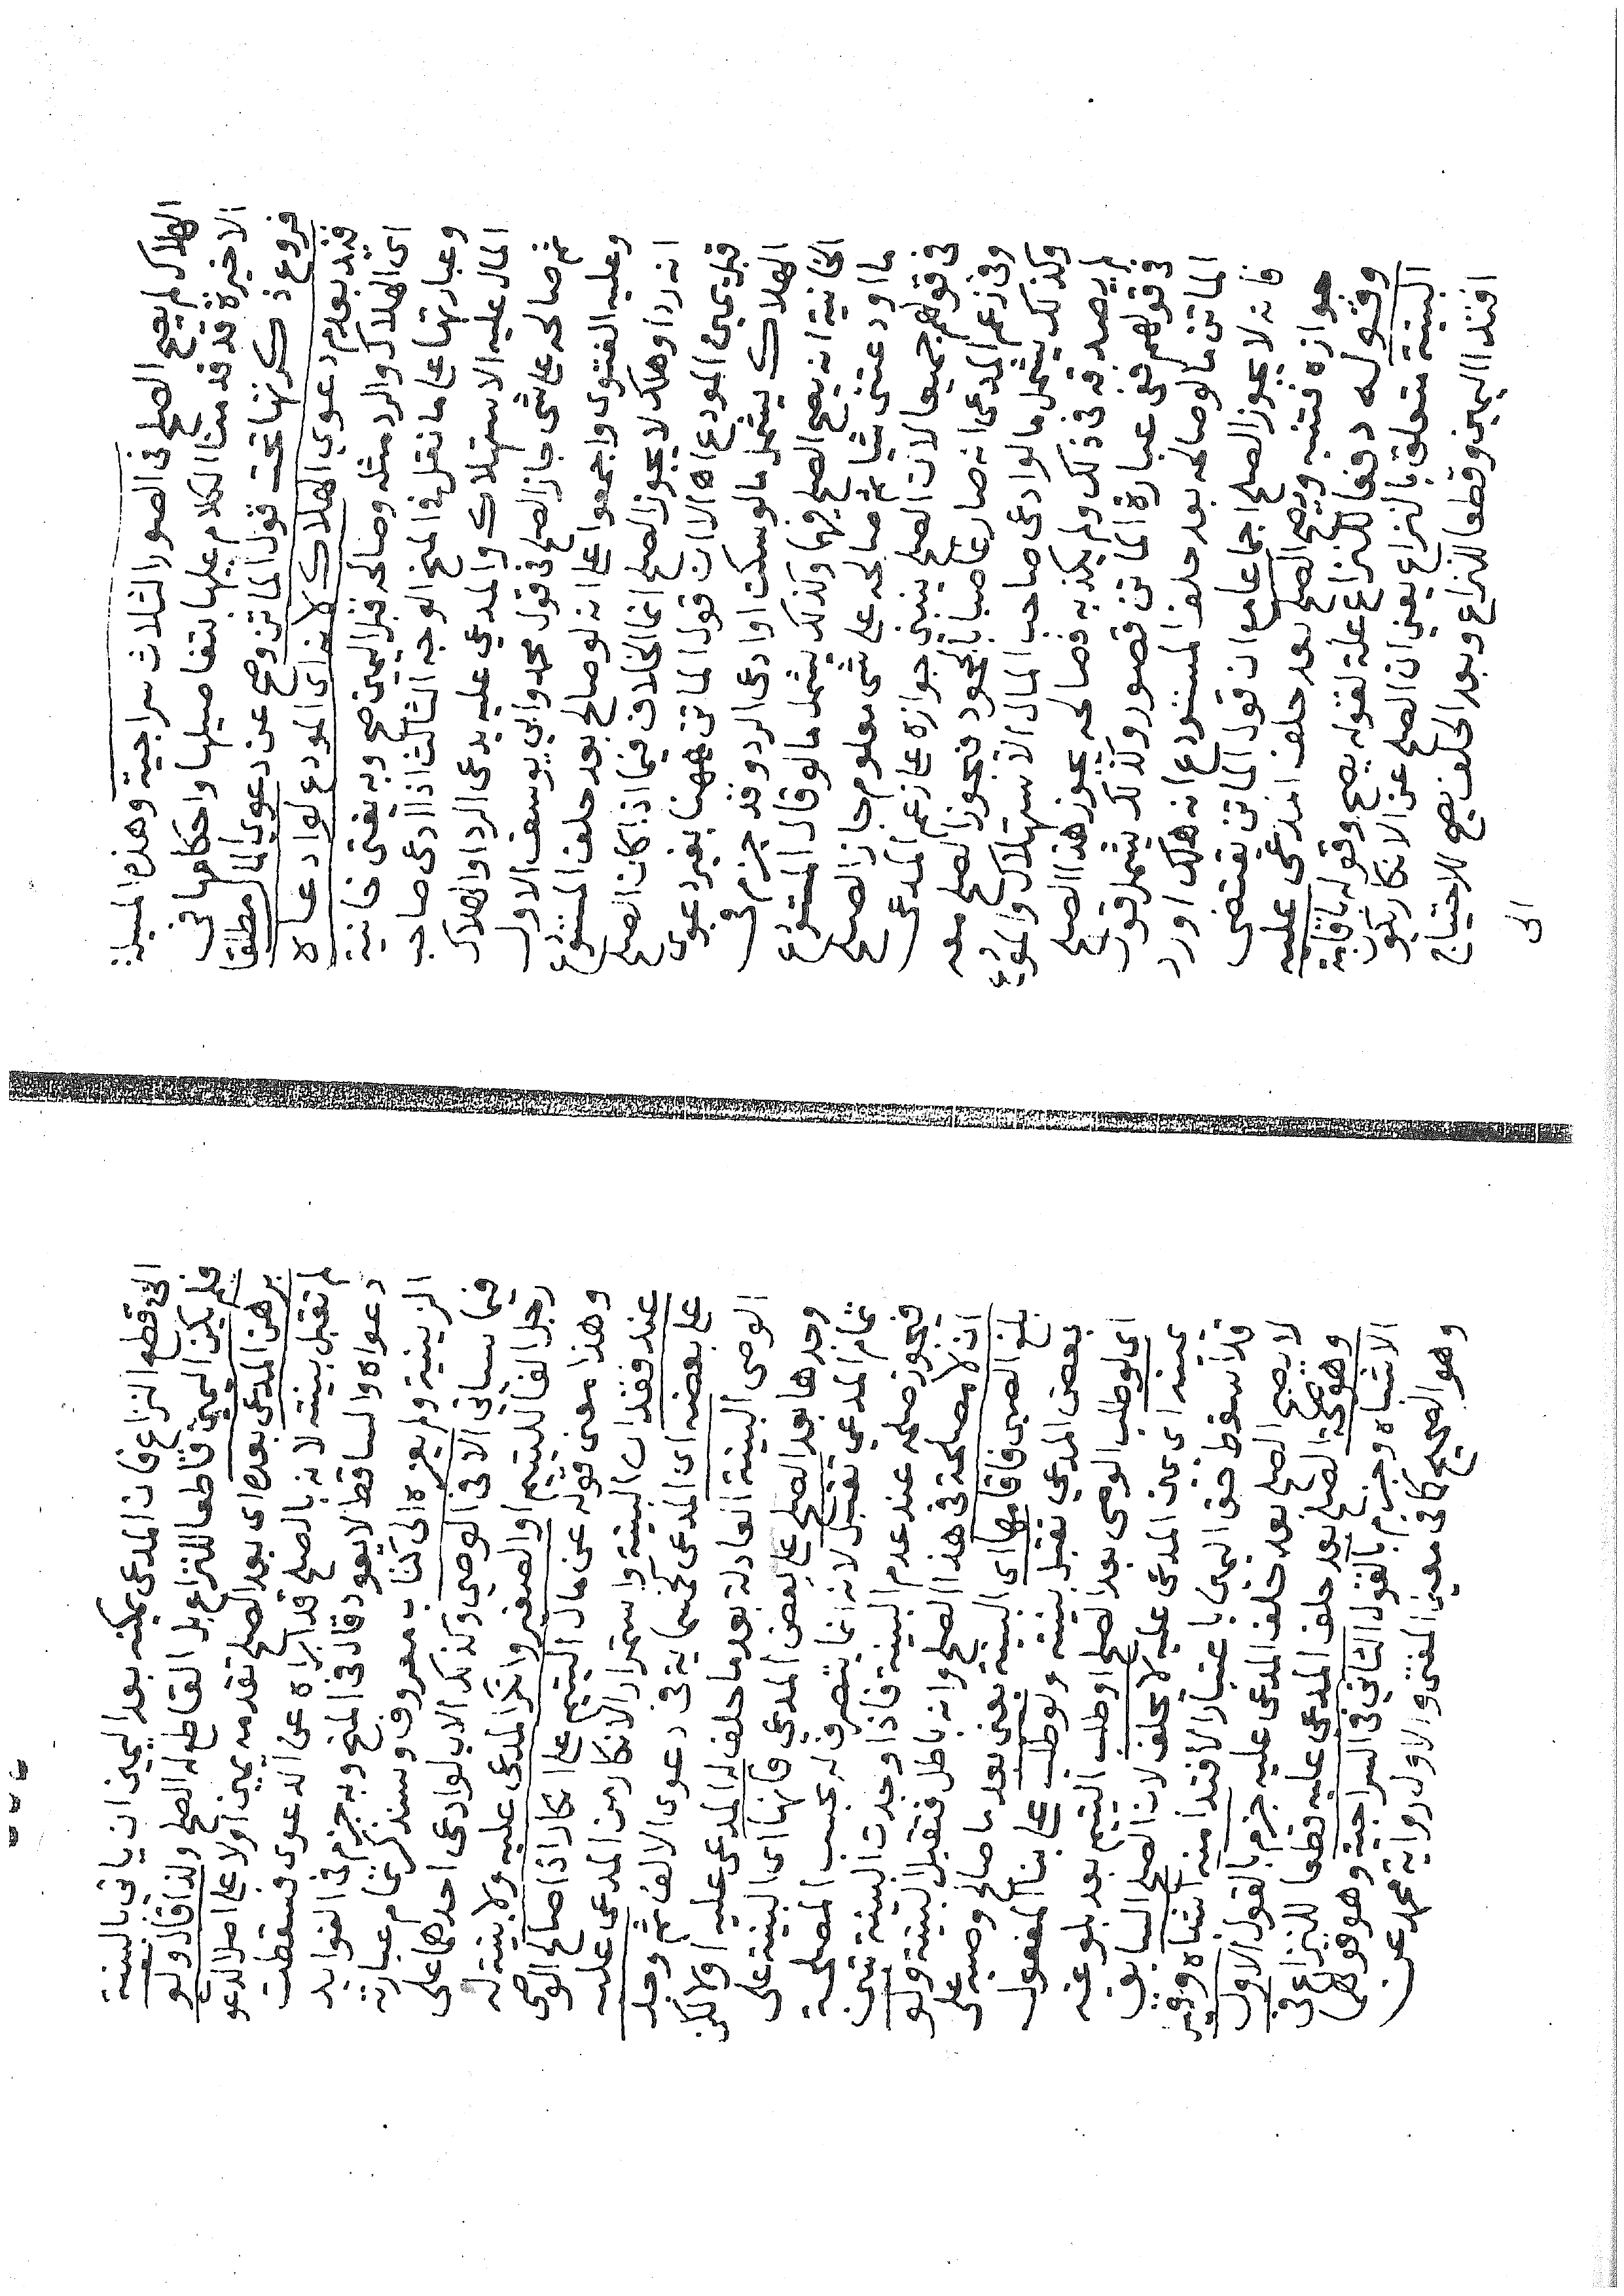 الهلاك لم يصح الصلح في الصور الثلاث سراجية وهذه المسئلة
الاخيرة قد قدمنا الكلام عليها بتفاصيلها واحكامها في
فروع ذكرتها تحت قول الماتن وصح عن دعوى المال مطلقا
قيد بعدم دعوى الهلاك لانه اي المودع لو ادعاه
اي الهلاك والرد مثله وصالحه قبل اليمين صح وبه يفتى خانية
وعبارتها على ما نقل في المنح الوجه الثالث اذا ادعى صاحب
المال عليه الاستهلاك والمدعي عليه يدعي الرد او الهلاك
ثم صالحه على شي جاز الصلح في قول محمد وابي يوسف الاول
وعليه الفتوى واجمعوا على انه لو صالح بعد حلف المستودع
انه رد او هلك لا يجوز الصلح انما الخلاف فيما اذا كان الصلح
قبل يمين المودع اه الا ان قول الماتن ههنا بغير دعوى
الهلاك يشمل ما لو سكت او ادعى الرد وقد جزم في
الخانية انه يصح الصلح فيهما وكذلك يشمل ما لو قال المستودع
ما اودعتني شيا ثم صالحه على شي معلوم جاز الصلح
في قولهم جميعا لان الصلح يبنى جوازه على زعم المدعي
وفي زعم المدعي انه صار غاصبا بالجحود فيجوز الصلح معه
وكذلك يشمل ما لو ادعى صاحب المال الاستهلاك والمودع
لم يصدقه في ذلك ولم يكذبه فصالحه يجوز هذا الصلح
في قولهم ففي عبارة الماتن قصور وكذلك يشمل قول
الماتن ما لو صالحه بعد حلف المستودع انه هلك او رد
فانه لا يجوز الصلح اجماعا مع ان قول الماتن يقتضي
جوازه فتنبه ويصح الصلح بعد حلف المدعى عليه
وقوله دفعا للنزاع علة لقوله يصح وقوله باقامة
البينة متعلق بالنزاع يعني ان الصلح عن الانكار يكون
افتداء اليمين وقطعا للنزاع وبعد الحلف يصح للاحتياج
الى
الى قطع النزاع فان المدعي يمكنه بعد اليمين ان ياتي بالبينة
فلم يكن اليمين قاطعا للنزاع بل القاطع له الصلح ولذا قال ولو
برهن المدعي بعده اي بعد الصلح تقدمه يمين اولا على اصل الدعوى
لم تقبل بينته لانه بالصلح قد ابراه عن الدعوى فسقطت
دعواه والساقط لا يعود قال في المنح وبه جزم في الفوايد
الزينية ولم يعزه الى كتاب معروف وسنذكر تمام عبارته
فيما سياتي الا في الوصي وكذلك الاب لو ادعى احدهما على
رجل الفا لليتيم او الصغير وانكر المدعى عليه ولا بينة له
وهذا معنى قوله عن مال اليتيم على انكار اذا صالح الوصي
عند فقدان البينة واستمرار الانكار من المدعى عليه
على بعضه اي المدعى كخمسماية في دعوى الالف ثم وجد
الوصي البينة العادلة بعد ما حلف له المدعى عليه اولا لكن
وجدها بعد الصلح على بعض المدعي فانها اي البينة على
تمام المدعي تقبل لانه انما يتصرف له بحسب المصلحة
فيجوز صلحه عند عدم البينة فاذا وجدت البينة تبين
ان لا مصلحة في هذا الصلح وانه باطل فتقبل البينة ولو
بلغ الصبي فاقامها اي البينة يعني بعد ما صالح وصيه على
بعض المدعي تقبل بينته ولو طلب على بنا المفعول
اي لو طلب الوصي بعد الصلح او طلب اليتيم بعد بلوغه
يمينه اي يمين المدعى عليه لا يحلف لان الصلح السابق
قد اسقط حق اليمين باعتبار الافتدا منه اشباه وقيل
لا يصح الصلح بعد حلف المدعى عليه جزم بالقول الاول
وهو صحة الصلح بعد حلف المدعى عليه قطعا للنزاع في
الاشباه وجزم بالقول الثاني في السراجية وهو قولهما
وهو الصحيح كما في معين المفتي والاول رواية محمد عن